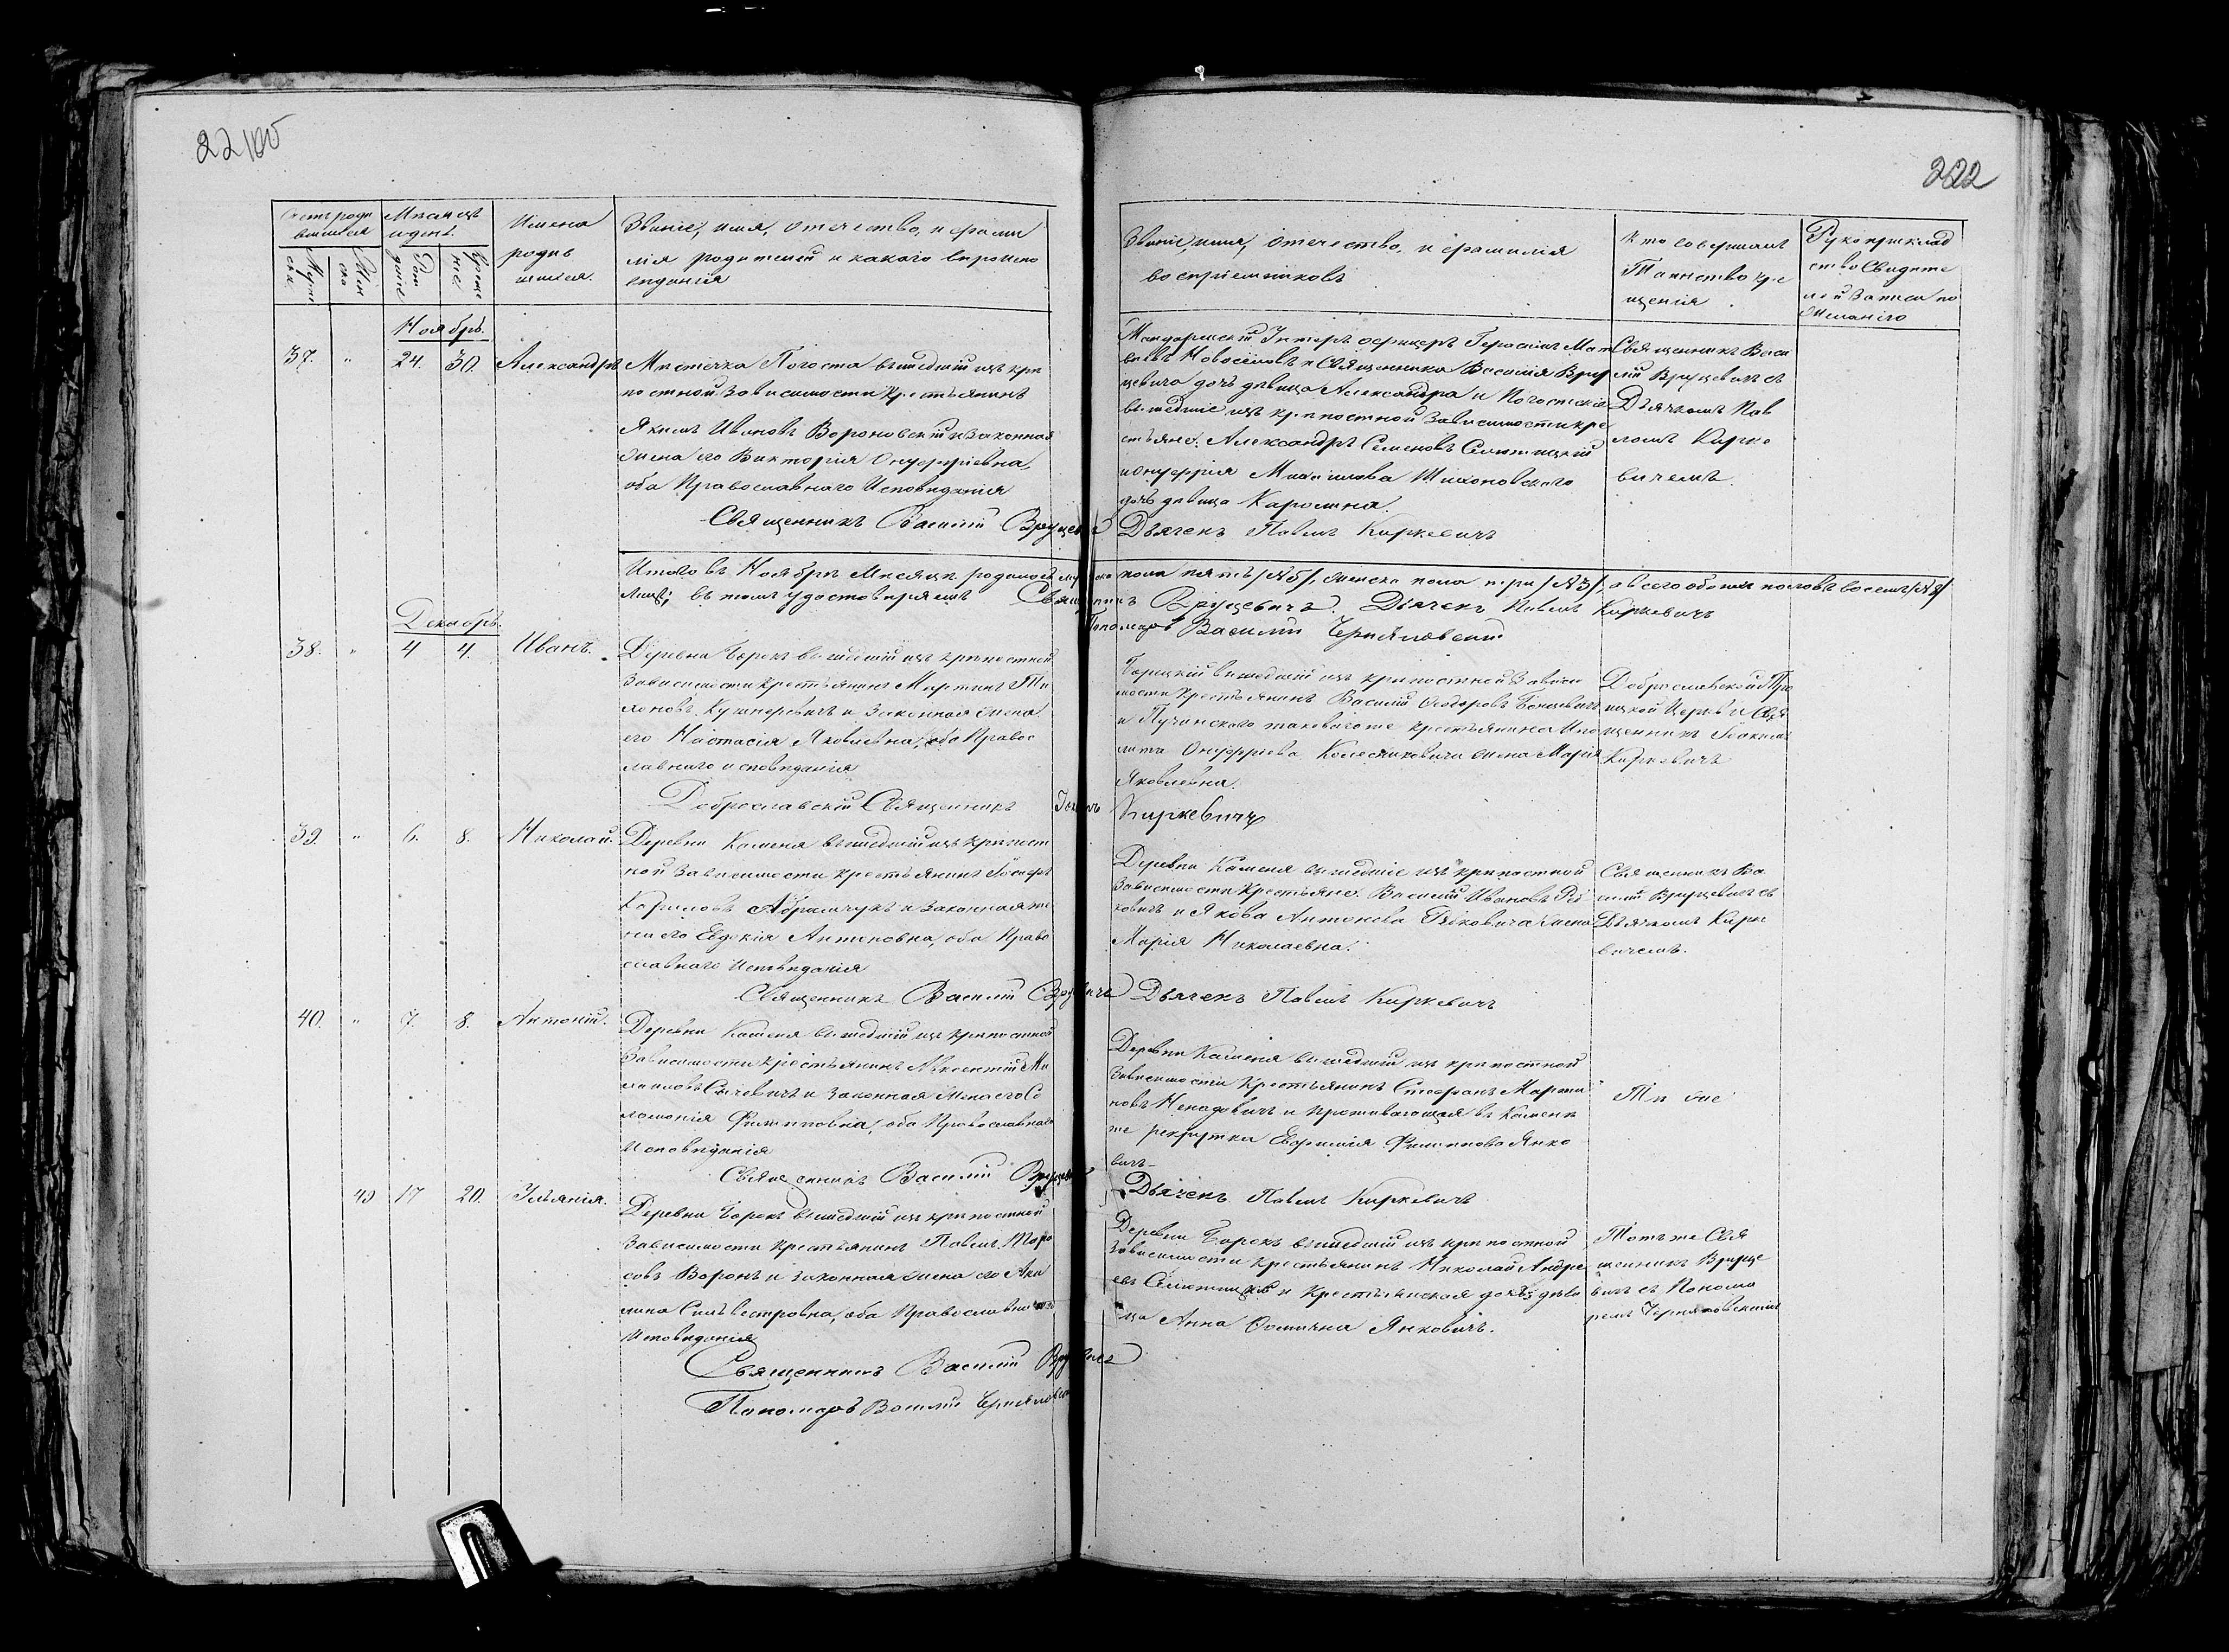 222
Счетъ роди
вшихся
Мѣсяцъ
и день.
Имена
родив
шихся.
Званіе, имя, отчество, и фами
лія родителей и какого вѣроиспо
вѣданія
Званіе, имя, отчество, и фамилія
воспріемниковъ
Кто совершалъ
Таинство кре
щенія
Рукоприклад
ство Свидѣте
лей записи по
желанію
Ноябрь.
37. " 24. 30. Александръ
Мѣстечка Погоста вышедшій изъ крѣ
постной зависимости крестьянинъ
Якимъ Ивановъ Вороновскій и законная
жена его Викторія Онуфріевна,
оба Православнаго Исповѣданія
Священникъ Василій Вруцевичъ
Унтеръ офицеръ Герасимъ Мат
вѣевъ Новосіоловъ и Священника Василія Вру
цевича дочь дѣвица Александра и Погостскіе
вышедшіе изъ крѣпостной зависимости кре
стьяне: Александръ Семеновъ
и Онуфрія
дочь дѣвица Каролина.
Дьячекъ Павелъ Киркевичъ
Священникъ Васи
лій Вруцевичъ съ
Дьячкомъ Пав
ломъ Кирке
вичемъ.
Итого въ Ноябрѣ Мѣсяцѣ родилось мужеска пола пять /№5/, женска пола три /№3/, а всего обоихъ половъ восемь /№8/
лицъ; въ томъ удостовѣряемъ Священникъ Вруцевичъ. Дьячекъ Павелъ Киркевичъ
Пономарь Василій Черняковскій
Декабрь.
38. " 4 4. Иванъ.
Деревни Борокъ вышедшій изъ крѣпостной
Зависимости крестьянинъ Мартинъ
Кушнеревичъ и Законная жена
его Настасія Яковлевна, оба Правос
лавнаго исповѣданія
Доброславскій Священникъ Киркевичъ
Борецкій вышедшій изъ крѣпостной Зависи
мости Крестьянинъ Василій Ѳеодоровъ
и таковаго же крестьянина Ипо
лита Онуфріева Колесниковича жена Марія
Яковлевна.
Доброславской Тро
ицкой Церкви Свя
щенникъ
Киркевичъ
39. " 6. 8. Николай.
Деревни Каменя вышедшій изъ крѣпост
ной Зависимости крестьянинъ Іосифъ
Абрамчукъ и Законная же
на его Евдокія Антоновна, оба Право
славнаго Исповѣданія
Священникъ Василій Вруцевичъ
Деревни Каменя вышедшіе изъ крѣпостной
Зависимости Крестьяне: Василій Ивановъ
и Якова Антонова жена
Марія Николаевна.
Дьячекъ Павелъ Киркевичъ
Священникъ Ва
силій Вруцевичъ съ
Дьячкомъ Кирке
вичемъ.
40. " 7. 8. Антоній.
Деревни Каменя вышедшій изъ крѣпостной
Зависимости крестьянинъ Авксентій Ми
и Законная жена его Со
ломонія Филиповна, оба Православнаго
Исповѣданія
Священникъ Василій Вруцевичъ
Деревни Каменя вышедшій изъ крѣпостной
Зависимости Крестьянинъ Стефанъ Марти
новъ Ненадовичъ и проживающая въ Каменѣ
же рекрутка Евфимія Филипова Янко
вичъ.
Дьячекъ Павелъ Киркевичъ
Тѣ же
40 17 20. Іуліанія.
Деревни Борокъ вышедшій изъ крѣпостной
Зависимости крестьянинъ Павелъ Тара
совъ Воронъ и законная жена его Аку
лина Сильвестровна, оба Православнаго
Исповѣданія
Священникъ Василій Вруцевичъ
Пономарь Василій Черняковскій
Деревни Борокъ вышедшій изъ крѣпостной
Зависимости крестьянинъ Николай Андре
евъ и крестьянская дочь дѣви
ца Анна Янковичъ.
Тотъ же Свя
щенникъ Вруце
вичъ съ Понома
ремъ Черняковскимъ